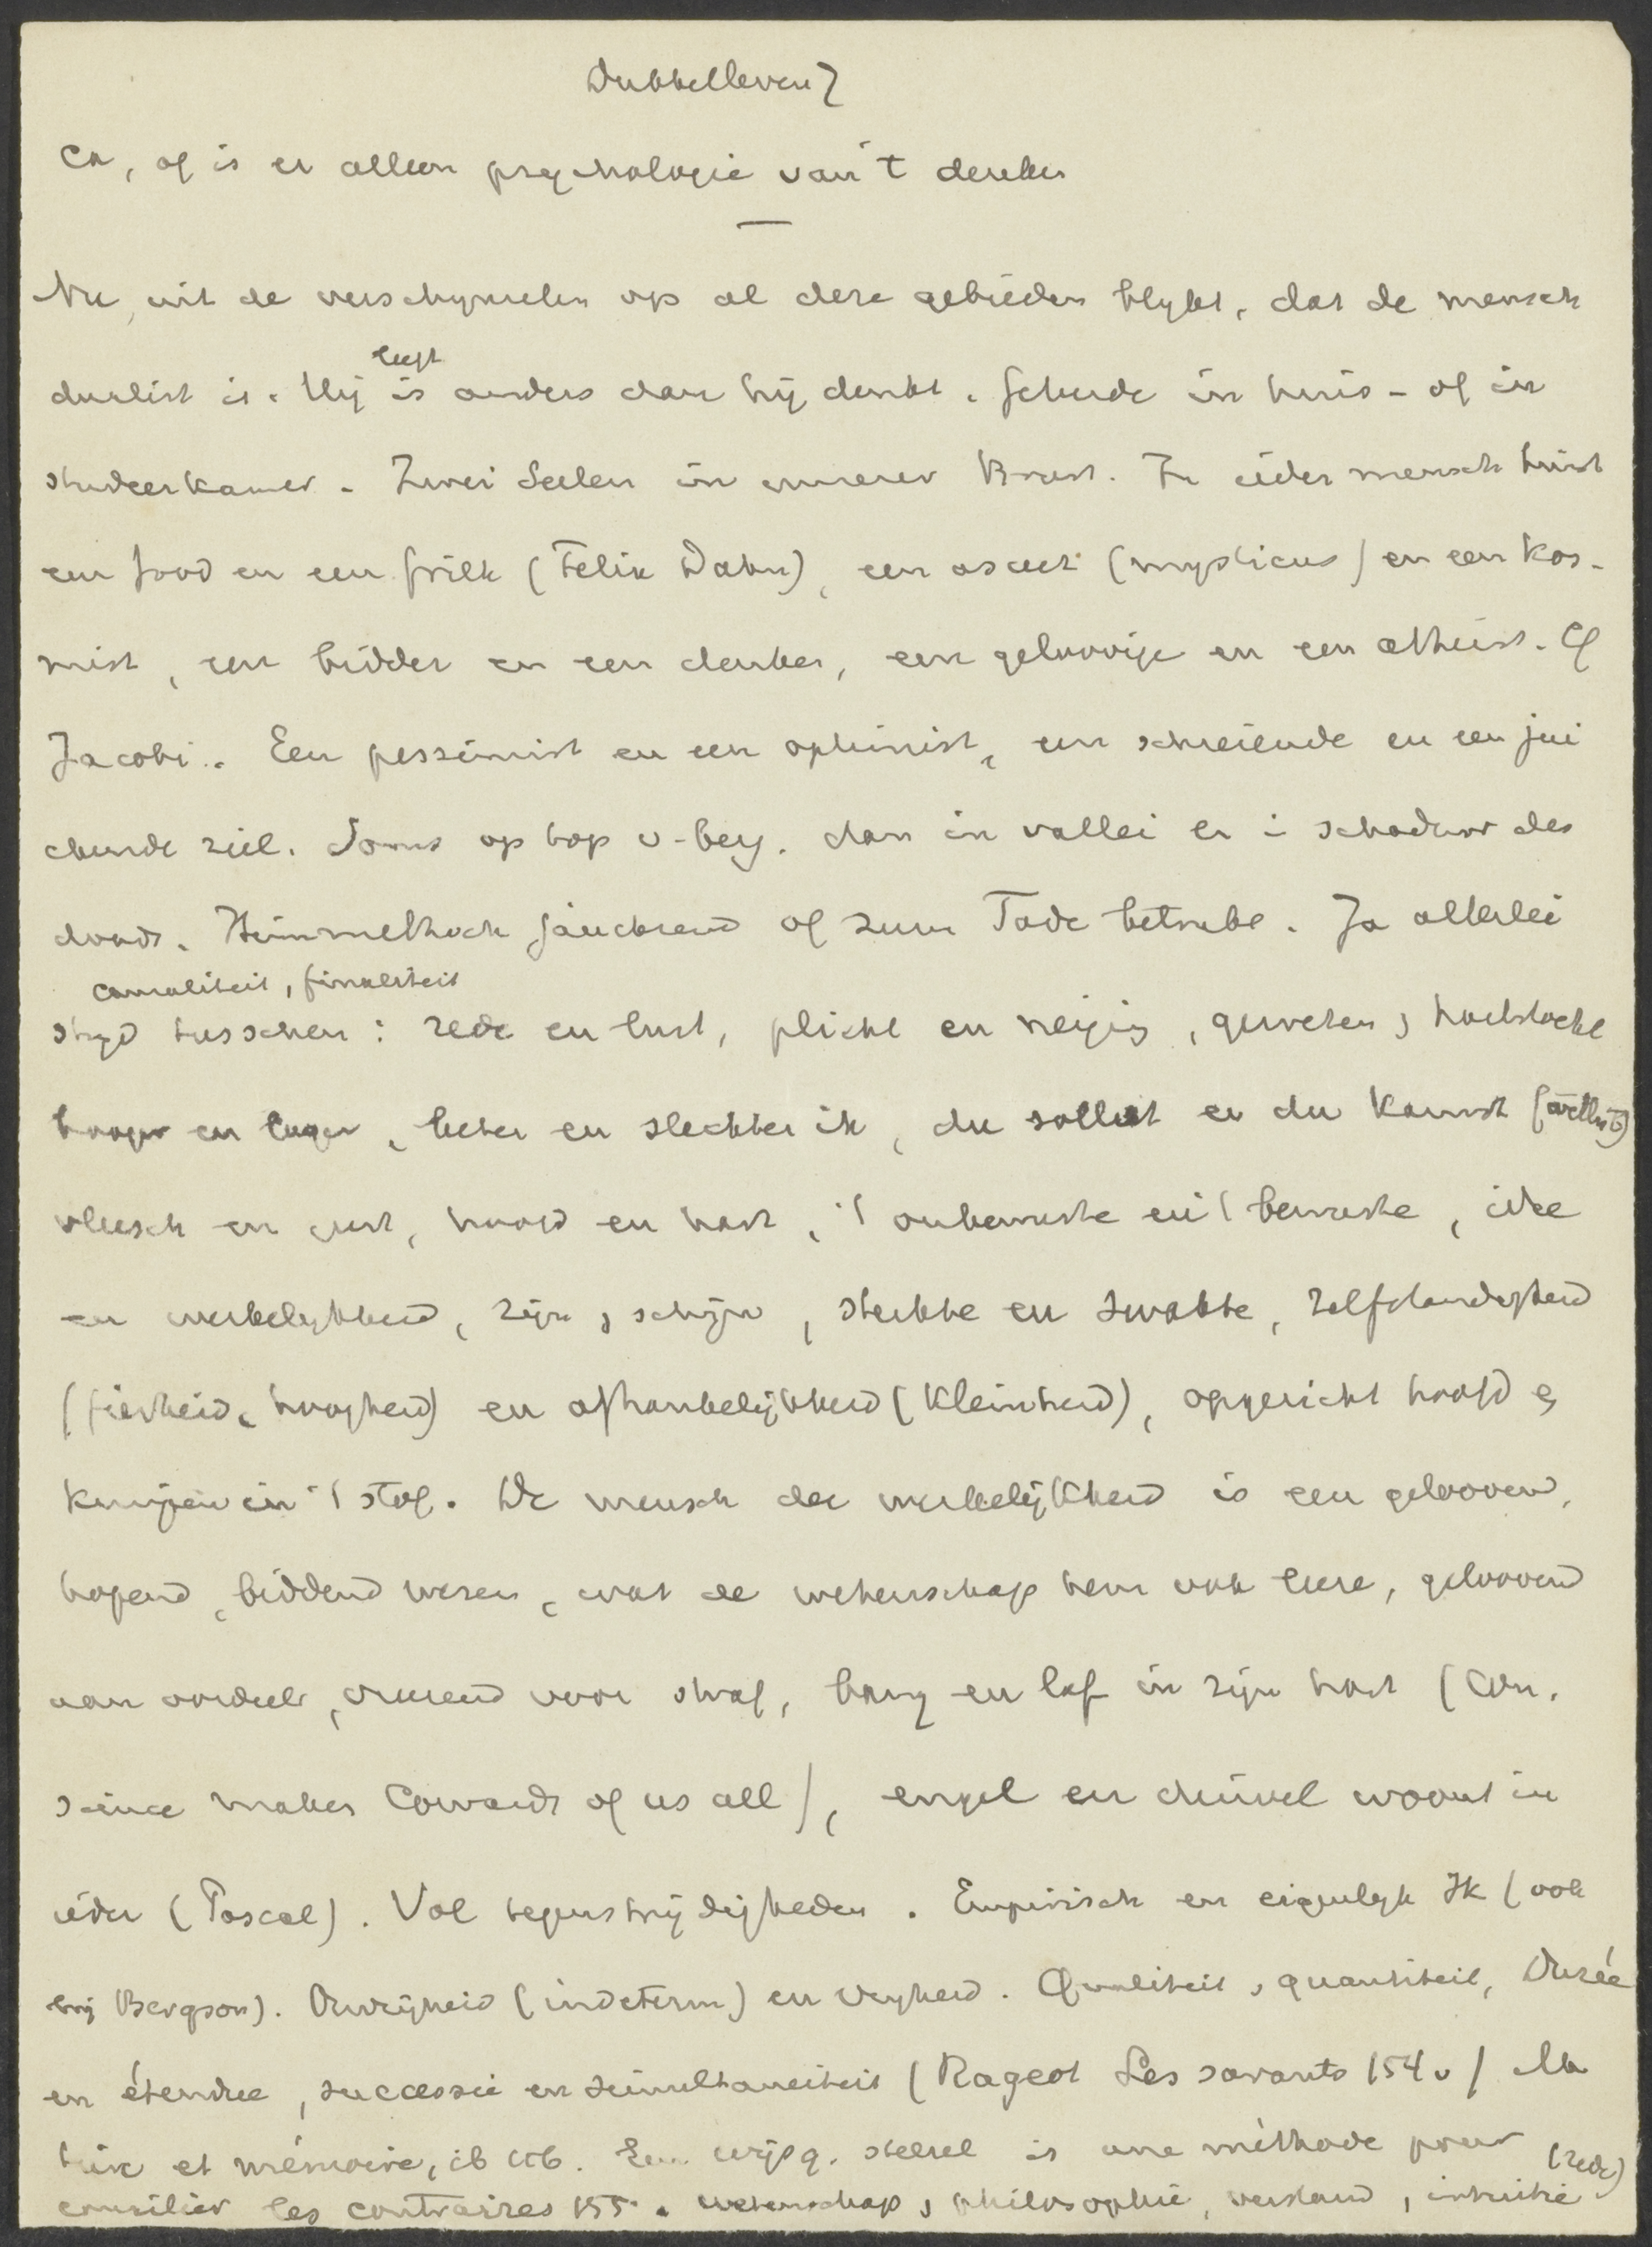 Dubbelleven?
en, of is er alleen psychologie van 't denken
Nu, uit de verschijnselen op al deze gebieden blijkt, dat de mensch
leeft
dualist is. Hij is anders dan hij denkt. Scheede in huis- of in
studeerkamer. Zwei Seelen in unserer Brust. In ieder mensch huist
een Jood en een Griek (Felix Dahn), een asceet (mysticus) en een kos-
mist, een bidder en een denker, een geloovige en een atheist. Cf
Jacobi. Een pessimist en een optimist, een schreiende en een jui
chende ziel. Soms op top v. berg. dan in vallei en i schaduw des
doods. Himmelhoch jauchzend of zum Tode betrubt. Ja allerlei
causaliteit, finaliteit
strijd tusschen: rede en lust, plicht en neiging, geweten, hartstocht
hooger en lager, beter en slechter ik, du sollst en du kannst
vleesch en geest, hoofd en hart, 't onbewuste en 't bewuste, idee
en werkelijkheid, zijn, schijn, sterkte en zwakte, zelfstandigheid
(fierheid, hoogheid) en afhankelijkheid (kleinheid), opgericht hoofd en
kruipen in 't stof. De mensch der werkelijkheid is een geloovend,
hopend, biddend wezen, wat de wetenschap hem ook leere, geloovend
aan oordeel, vreezend voor straf, bang en laf in zijn hart (Con-
science makes Cowards of us all), engel en duivel woont in
ieder (Pascal). Vol tegenstrijdigheden. Empirisch en eigenlijk Ik (ook
bij Bergson). Onvrijheid (indeterm) en vrijheid. Qualiteit, quantiteit, Durée
en étendue, successie en simultaneiteit (Rageot Les savants 154v) Ma
tière et mémoire, ib 156. Een wijsg. stelsel is une méthode pour
(rede)
concilier les contraires 155. wetenschap, philosophie, verstand, intuitie